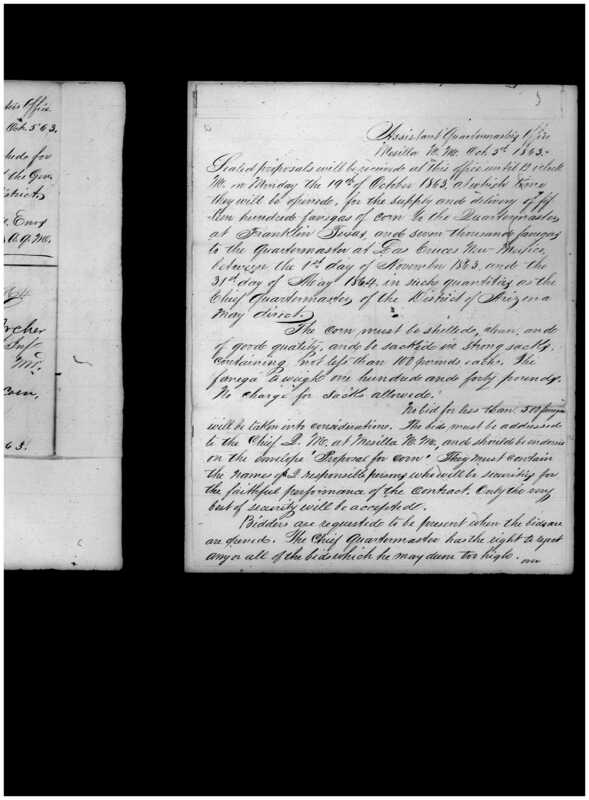 Office
Oct. 5 63.
for
the Gov
District,
Envg
A. Q. M.
cher
Inf
corn,
63.
Assistant Quartermasters Office
Mesilla N. M. Oct. 5th 1863.
Sealed proposals will be received at this office until 12 o'clock
M. on Monday the 19th of October 1863, at which time
they will be opened, for the supply and delivery of fif
teen hundred fanegas of corn to the Quartermaster
at Franklin Texas, and seven thousand fanegas
to the Quartermaster at Las Cruces New Mexico,
between the 1st day of November 1863, and the
31st day of May 1864, in such quantities as the
Chief Quartermaster of the District of Arizona
may direct.
The corn must be shelled, clean, and
of good quality, and be sacked in strong sacks,
containing not less than 100 pounds each. The
fanega to weigh one hundred and forty pounds.
No charge for sacks allowed.
No bid for less than 500 fanegas
will be taken into consideration. The bids must be addressed
to the Chief Q. M. at Mesilla N. M. and should be endorsed
on the envelope "Proposal for corn" They must contain
the names of 2 responsible persons who will be securities for
the faithful performance of the contract. Only the very
best of security will be accepted.
Bidders are requested to be present when the bids are
are opened. The Chief Quartermaster has the right to reject
any or all of the bids which he may deem too high.
over